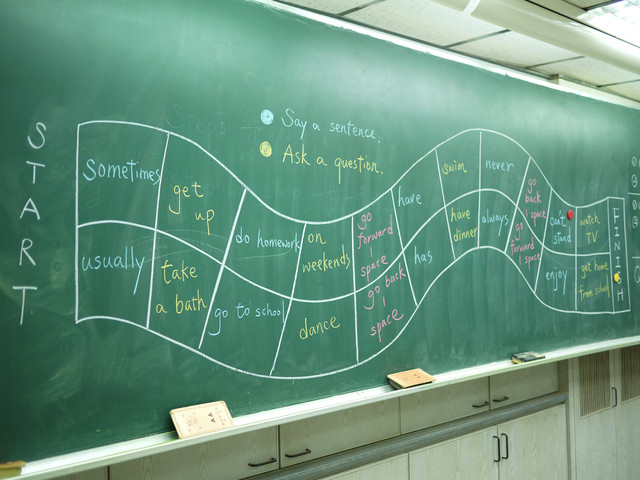 START
Say a sentence.
Ask a question.
sometimes
get
up
do homework
on
weekends
go
forward
1
space
have
swim
never
go
back
1 space
can't
stand
watch
TV
FINISH
usually
take
a bath
go to school
dance
go back
1
space
has
have
dinner
always
go
forward
1
space
enjoy
get home
from school